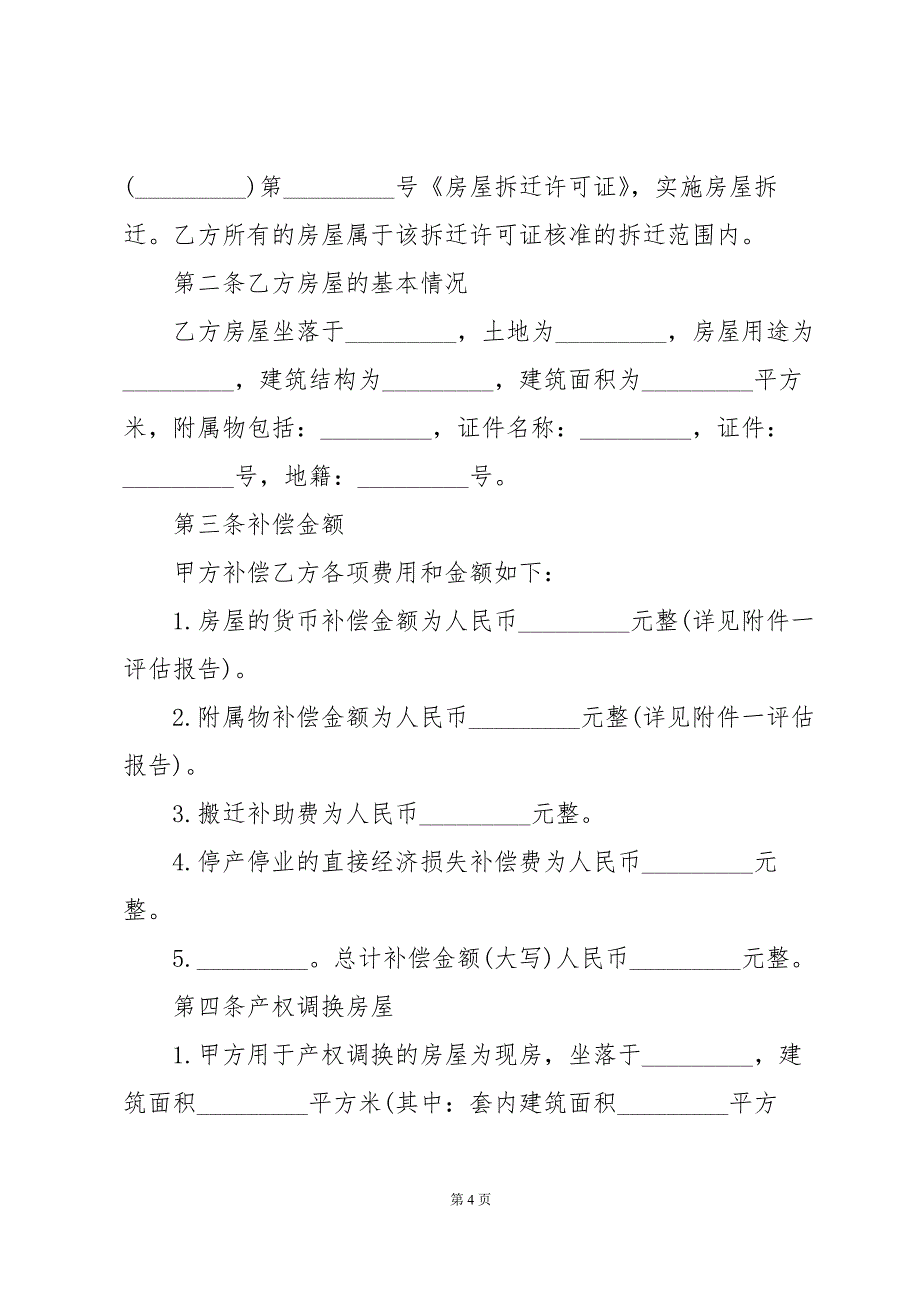 (_________)第_________号《房屋拆迁许可证》，实施房屋拆
迁。乙方所有的房屋属于该拆迁许可证核准的拆迁范围内。
第二条乙方房屋的基本情况
乙方房屋坐落于_________，土地为_________，房屋用途为
_________，建筑结构为_________，建筑面积为_________平方
米，附属物包括：_________，证件名称：_________，证件：
_________号，地籍：_________号。
第三条补偿金额
甲方补偿乙方各项费用和金额如下：
1.房屋的货币补偿金额为人民币_________元整(详见附件一
评估报告)。
2.附属物补偿金额为人民币_________元整(详见附件一评估
报告)。
3.搬迁补助费为人民币_________元整。
4.停产停业的直接经济损失补偿费为人民币_________元
整。
5._________。总计补偿金额(大写)人民币_________元整。
第四条产权调换房屋
1.甲方用于产权调换的房屋为现房，坐落于_________，建
筑面积_________平方米(其中：套内建筑面积_________平方
第 4 页